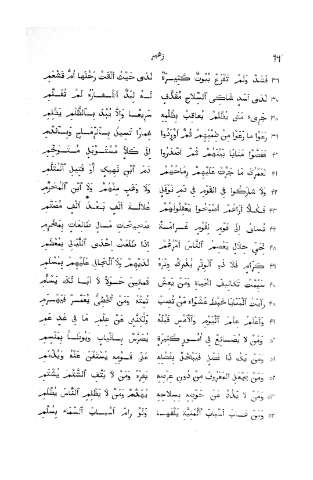 زهير
فشد ولم تفزع بيوت كثيرة لدى حيث ألقت رحلها أم قشعم
لدى أسد شاكي السلاح مقذف له لبد أظفاره لم تقلم
جريء متى يظلم يعاقب بظلمه سريعا وإلا يبد بالظلم يظلم
رعوا ما رعوا من ظمئهم ثم أوردوا غمارا تسيل بالرماح وبالدم
فقضوا منايا بينهم ثم أصدروا إلى كلإ مستوبل متوخم
لعمرك ما جرت عليهم رماحهم دم ابن نهيك أو قتيل المثلم
ولا شاركوا في القوم في دم نوفل ولا وهب منهم ولا ابن المخزم
فكلا أراهم أصبحوا يعقلونهم علالة ألف بعد ألف مصتم
تساق إلى قوم لقوم غرامة صحيحات مال طالعات بمخرم
لحي حلال يعصم الناس أمرهم إذا طلعت إحدى الليالي بمعظم
كرام فلا ذو الوتر يدرك وتره لديهم ولا الجاني عليهم بمسلم
سئمت تكاليف الحياة ومن يعش ثمانين حولا لا أبا لك يسأم
رأيت المنايا خبط عشواء من تصب تمته ومن تخطئ يعمر فيهرم
وأعلم علم اليوم والأمس قبله ولكنني عن علم ما في غد عم
ومن لا يصانع في أمور كثيرة يضرس بأنياب ويوطأ بمنسم
ومن يك ذا فضل فيبخل بفضله على قومه يستغن عنه ويذمم
ومن يجعل المعروف من دون عرضه يفره ومن لا يتق الشتم يشتم
ومن لا يذد عن حوضه بسلاحه يهدم ومن لا يظلم الناس يظلم
ومن هاب أسباب المنية يلقها ولو رام أسباب السماء بسلم